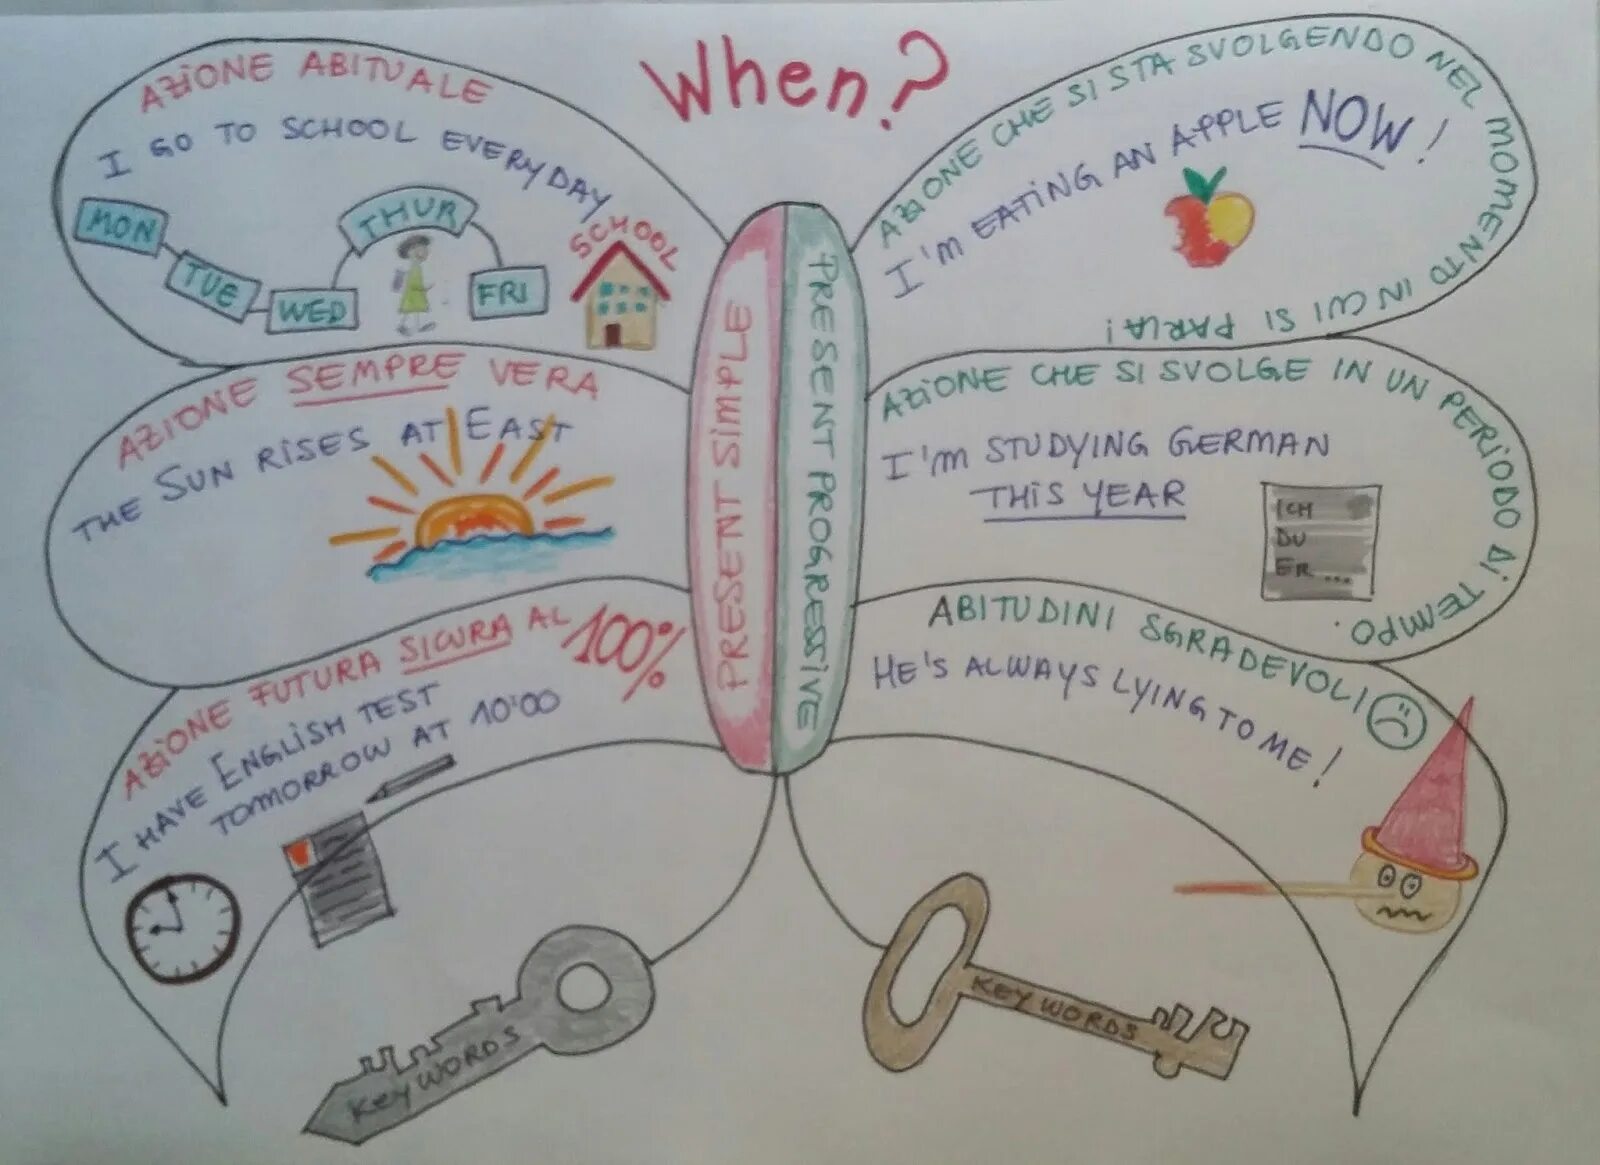 When?
AZIONE ABITUALE
I GO TO SCHOOL EVERY DAY
MON
TUE
WED
THUR
FRI
SCHOOL
AZIONE SEMPRE VERA
THE SUN RISES AT EAST
AZIONE FUTURA SICURA AL 100%
I HAVE ENGLISH TEST
TOMORROW AT 10:00
PRESENT SIMPLE
PRESENT PROGRESSIVE
AZIONE CHE SI STA SVOLGENDO NEL MOMENTO IN CUI SI PARLA!
I'M EATING AN APPLE NOW!
AZIONE CHE SI SVOLGE IN UN PERIODO DI TEMPO.
I'M STUDYING GERMAN
THIS YEAR
ICH
DU
ER...
ABITUDINI SGRADEVOLI
HE'S ALWAYS LYING TO ME!
KEY WORDS
KEY WORDS